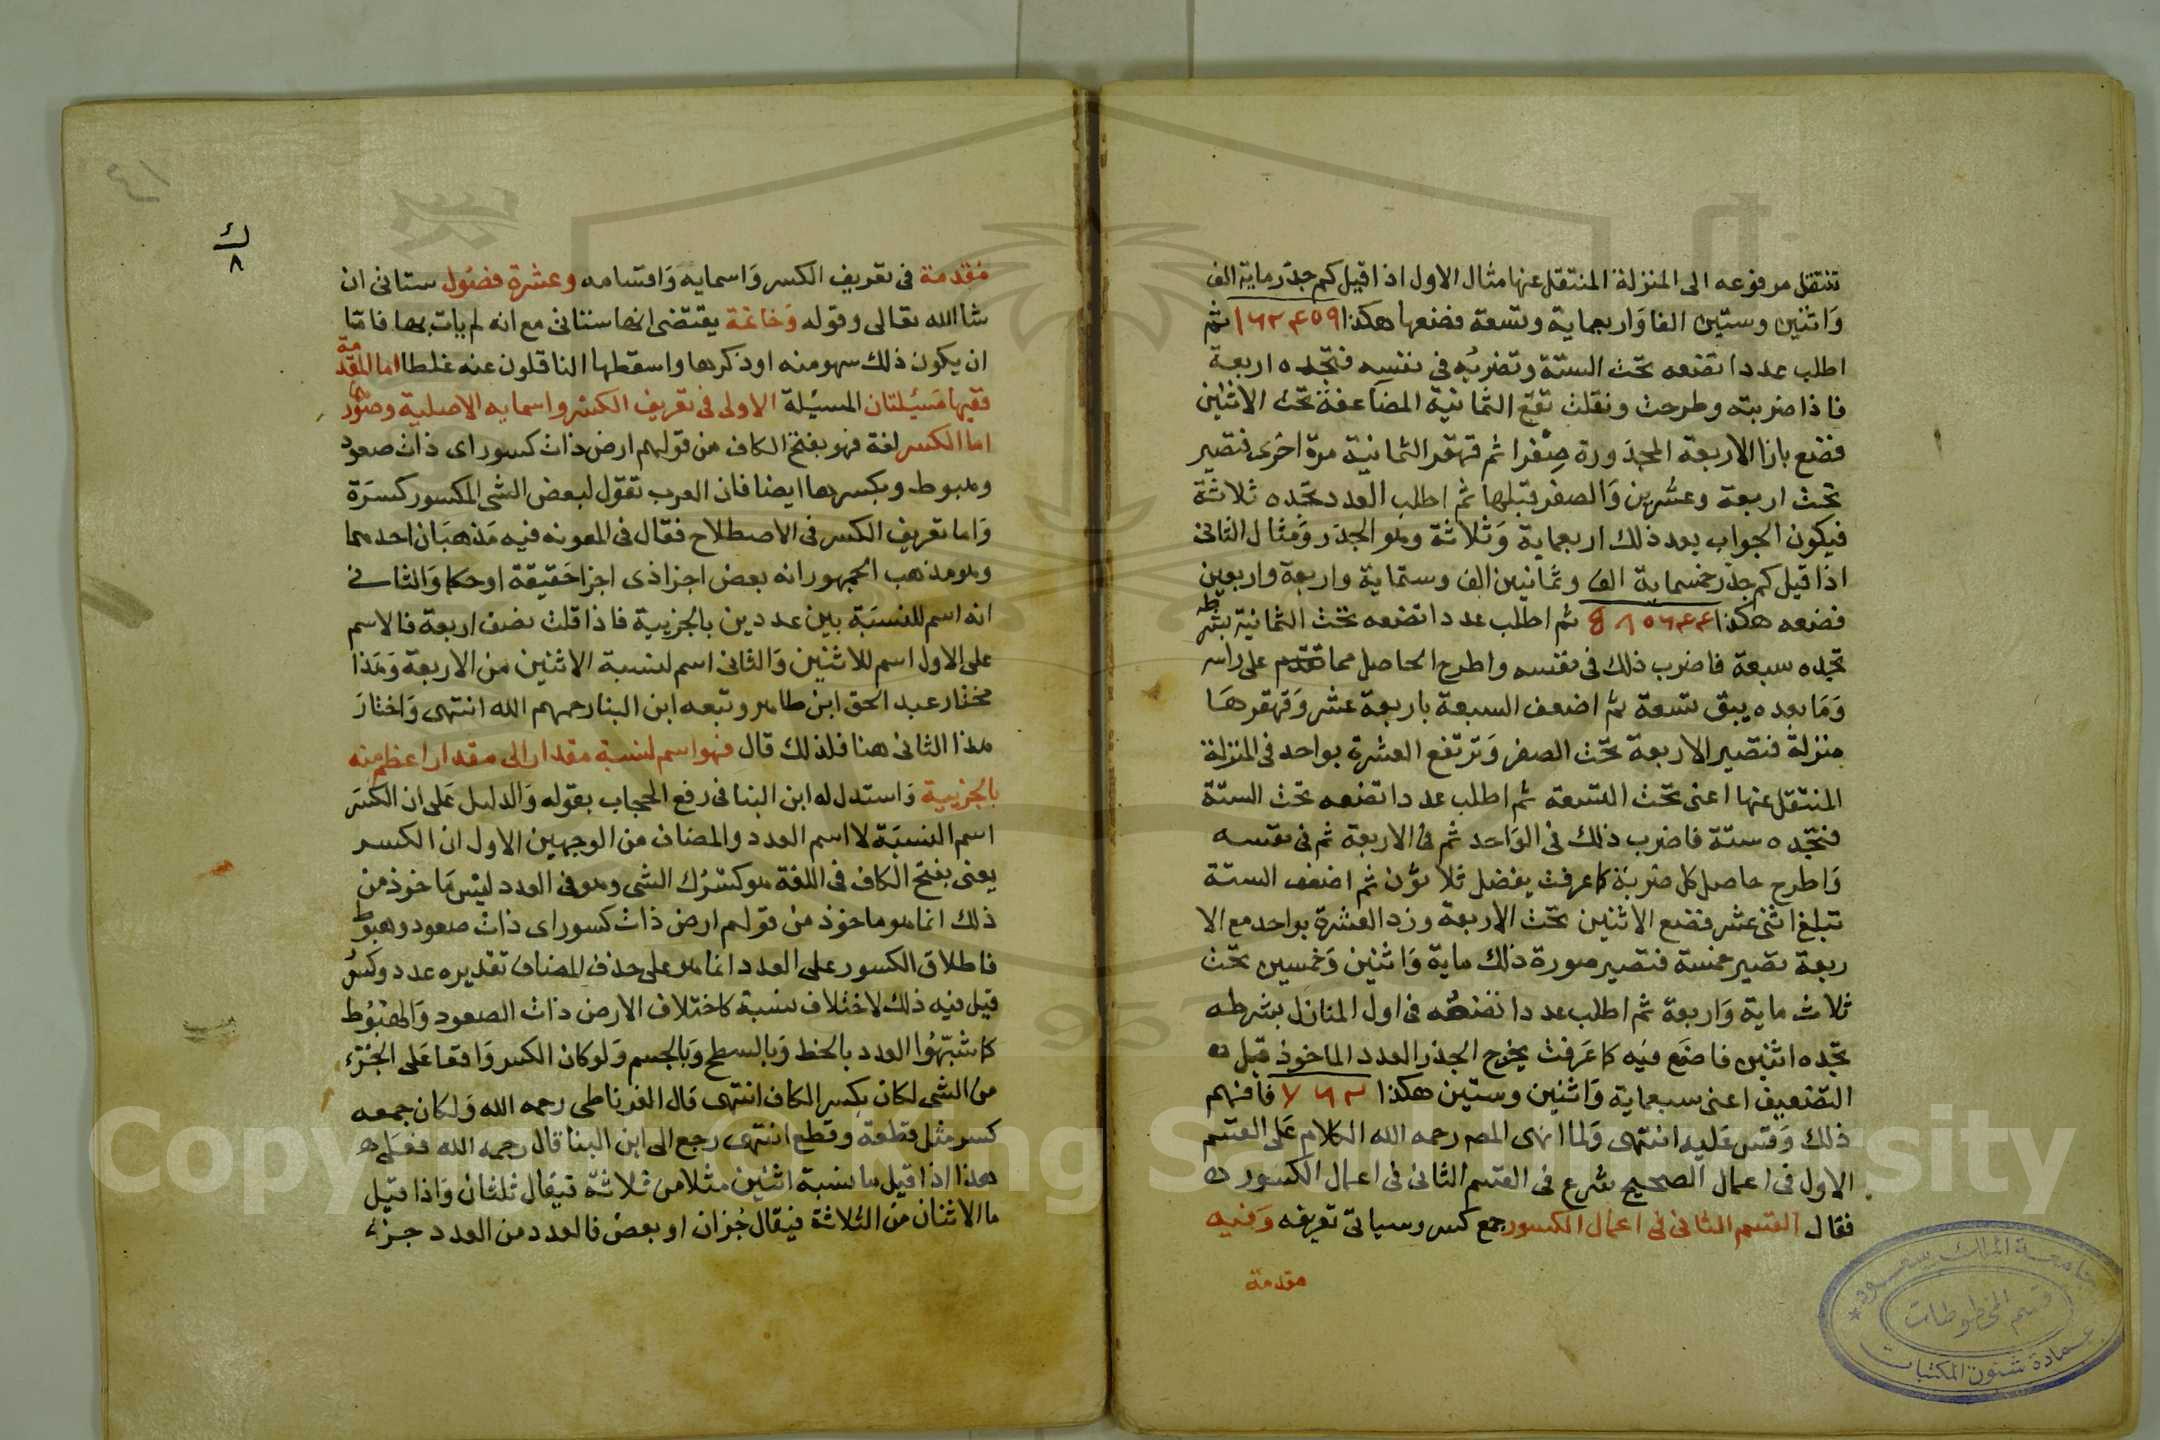 تنتقل مرفوعه الى المنزلة المنتقل عنها مثال الاول اذا قيل كم جذر ماية الف
وَاثنين وستين الفا وَاربعماية وتسعة فضعها هكذا ١٦٢٤٠٩ ثم
اطلب عددا تضعه تحت الستة وتضربه فى نفسه فتجده اربعة
فاذا ضربته وطرحت ونقلت تقع الثمانية المضاعفة تحت الاثنين
فضع بازا الاربعة المجذورة صفرا ثم قهقر الثمانية مرة اخرى فتصير
تحت اربعة وعشرين وَالصفر قبلها ثم اطلب العدد تجده ثلاثة
فيكون الجواب بعد ذلك اربعماية وَثلاثة وهو الجذر وَمثال الثانى
اذا قيل كم جذر خمسماية الف وثمانين الف وستماية واربعة واربعين
فضعه هكذا ٥٨٠٦٤٤ ثم اطلب عددا تضعه تحت الثمانية بشرطه
تجده سبعة فاضرب ذلك فى نفسه واطرح الحاصل مما تقدم على راسه
وَمَا بعده يبق تسعة ثم اضعف السبعة باربعة عشر وَقهقرهَا
منزلة فتصير الاربعة تحت الصفر وَترتفع العشرة بواحد فى المنزلة
المنتقل عنها اعنى تحت التسعة ثم اطلب عددا تضعه تحت الستة
فتجده ستة فاضرب ذلك فى الوَاحد ثم فى الاربعة ثم فى نفسه
وَاطرح حاصل كل ضربة كما عرفت يفضل ثلاثون ثم اضعف الستة
تبلغ اثنى عشر فضع الاثنين تحت الاربعة وزد العشرة بواحد مع الا
ربعة تصير خمسة فتصير صورة ذلك ماية وَاثنين وَخمسين تحت
ثلاث ماية وَاربعة ثم اطلب عددا تضعه فى اول المنازل بشرطه
تجده اثنين فاضع فيه كما عَرفت يخرج الجذر العدد الماخوذ قبل
التضعيف اعنى سبعماية وَاثنين وستين هكذا ٧٦٢ فافهم
ذلك وَقس عَليه انتهى وَلما انهى المص رحمه الله الكلام عَلى القسم
الاول فى اعمال الصحيح شرع فى القسم الثانى فى اعمال الكسور
فقال القسم الثانى فى اعمال الكسور جمع كسر وسياتى تعريفه وَفيه
مقدمة
مُقدمة فى تعريف الكسر وَاسمايه وَاقسامه وعشرة فصُول ستاتى ان
شا الله تعالى وقوله وَخاتمة يقتضى انها ستاتى مع انه لم يات بها فاما
ان يكون ذلك سهو منه او ذكرها واسقطها الناقلون عنه غلطا اما المقدمة
ففيها مَسئلتان المسئلة الاولى فى تعريف الكسر واسمايه الاصلية وصورها
اما الكسر لغة فهو بفتح الكاف من قولهم ارض ذات كسور اى ذات صعود
وهبوط وبكسرها ايضا فان العرب تقول لبعض الشى المكسور كسرَة
وَاما تعريف الكسر فى الاصطلاح فقال فى المعونه فيه مَذهبَان احدهما
وهو مذهب الجمهور انه بعض اجزا ذى اجزا حَقيقة او حكما وَالثانى
انه اسم للنسبَة بين عددين بالجزيية فاذا قلت نصف اربعة فالاسم
على الاول اسم للاثنين وَالثانى اسم لنسبة الاثنين من الاربعة وَهَذا
مختار عبد الحق ابن طاهر وتبعه ابن البنا رحمهم الله انتهى وَاختارَ
هذا الثانى هنا فلذلك قال فهو اسم لنسبة مقدار الى مقدار اعظم منه
بالجزيية وَاستدل له ابن البنا فى رفع الحجاب بقوله وَالدليل عَلى ان الكسَر
اسم النسبَة لا اسم العدد والمضاف من الوجهين الاول ان الكسر
يعنى بفتح الكاف فى اللغة هو كسْرُك الشى وهو فى العدد ليسَ مَاخوذ من
ذلك انما هو ماخوذ من قولهم ارض ذات كسور اى ذات صعود وهبوط
فاطلاق الكسور على العدد انما هو على حذف المضاف تقديره عدد وكسُر
قيل فيه ذلك لاختلاف نسبة كاختلاف الارض ذات الصعود وَالهبُوط
كما شبّهُوا العدد بالخط وَبالسطح وَبالجسم وَلو كان الكسر وَاقعا عَلى الجزء
من الشى لكان بكسر الكاف انتهى قال الغرناطى رحمه الله وَلكان جمعه
كسر مثل قطعة وقطع انتهى رجع الى ابن البنا قال رحمه الله فعَلى
هذا اذا قيل ما نسبة اثنين مثلا من ثلاثة فيقال ثلثان وَاذا قيل
ما الاثنان من الثلاثة فيقال جُزان او بعض فالعدد من العدد جزء
جامعة الملك سعود
قسم المخطوطات
عمادة شئون المكتبات
Copyright © King Saud University